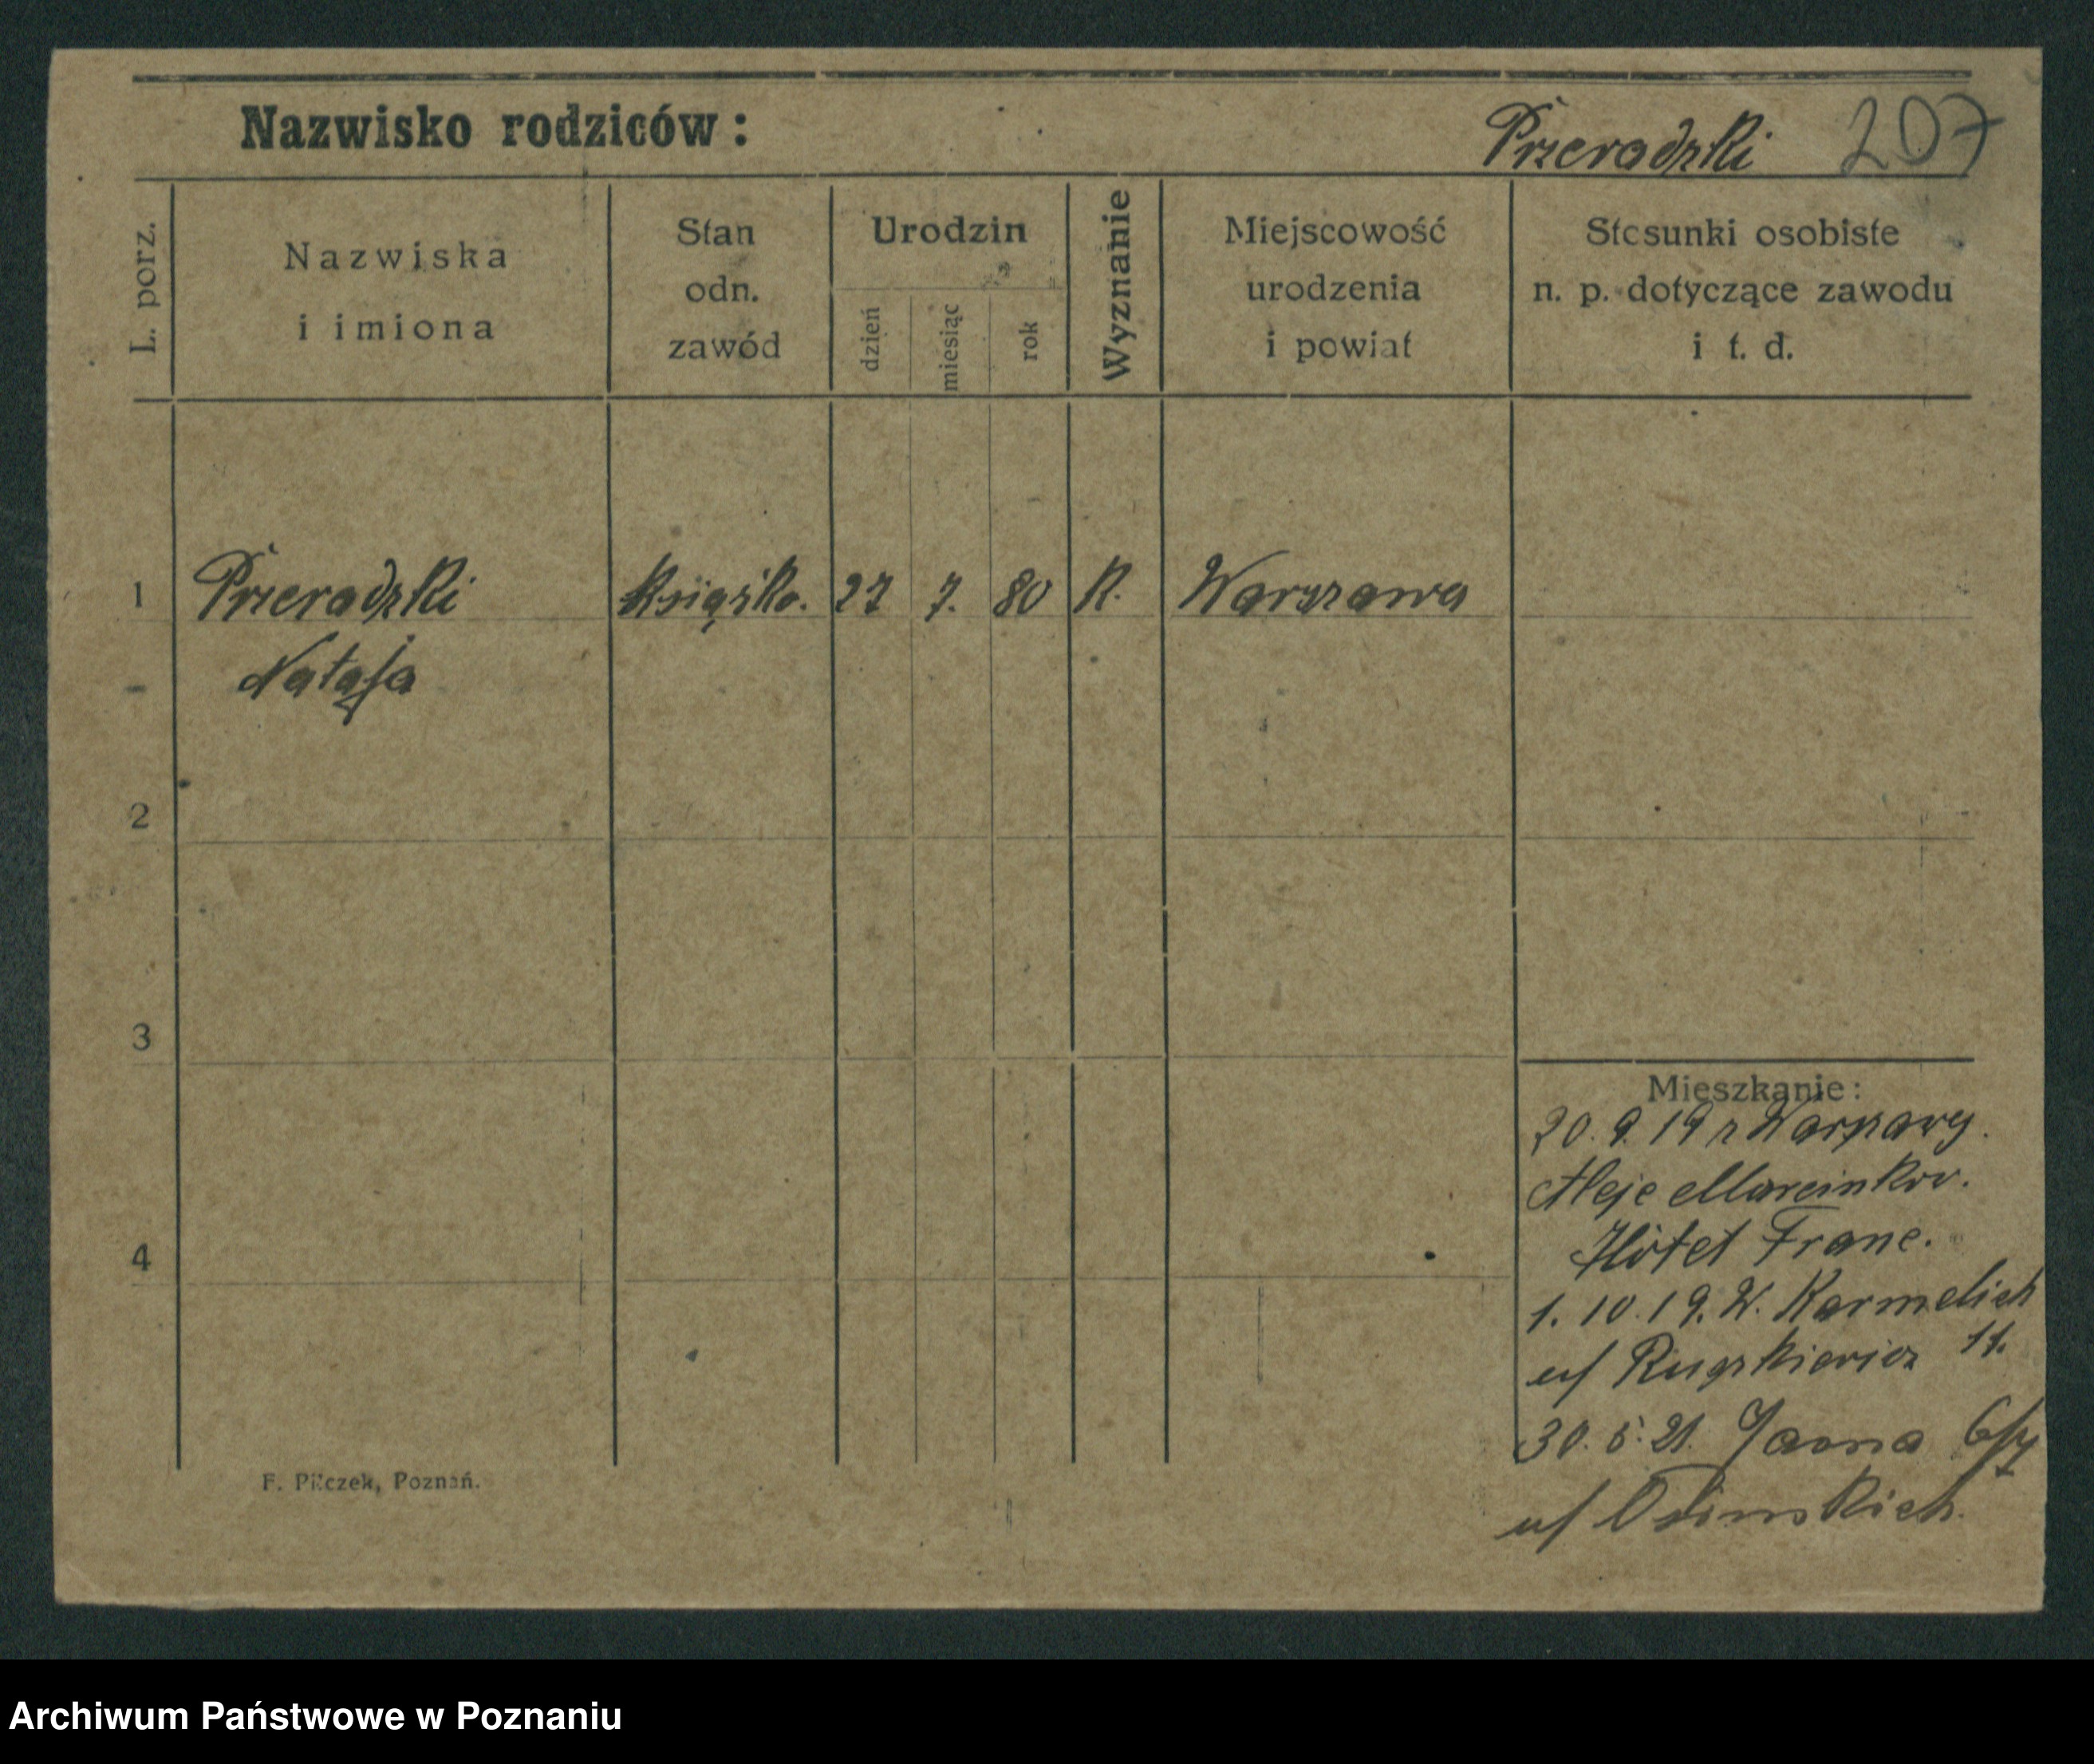 Nazwisko rodziców: Przeradzki 207
L. porz.
Nazwiska
i imiona
Stan
odn.
zawód
Urodzin
dzień
miesiąc
rok
Wyznanie
Miejscowość
urodzenia
i powiat
Stosunki osobiste
n. p. dotyczące zawodu
i t. d.
1 Przeradzki Książko. 27 7. 80 R. Warszawa
2
3
4
Mieszkanie:
20. 9. 19 z Warszawy.
Aleje Marcinkow.
Hôtel Franc.
1. 10. 19. W. Karmelick
u/ Ruszkiewicz 11.
30. 5. 21. Jasna
u/ Osinskich.
F. Pilczek, Poznań.
Archiwum Państwowe w Poznaniu